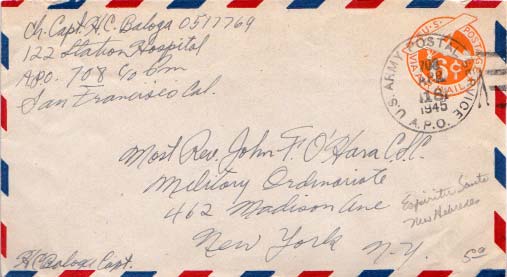 Ch. Capt. H.C. Baloga 0517769
122 Station Hospital
A.P.O. 708 c/o P.m
San Francisco Cal.
U.S. POSTAGE
VIA AIR MAIL
6¢
U.S. ARMY POSTAL SERVICE
708
APR
18
1945
A.P.O.
Most Rev. John F. O'Hara C.S.C.
Military Ordinariate
462 Madison Ave
New York N.Y.
Espiritu Santo
New Hebredes
HC Baloga Capt.